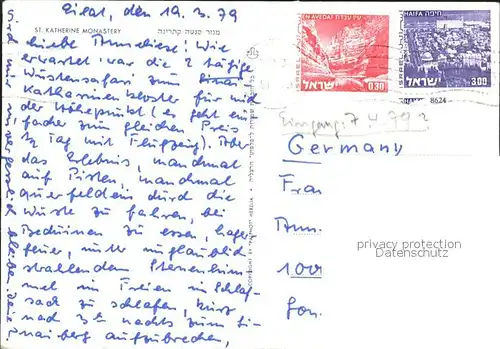 Eilat, den 19.3.79
ST. KATHERINE MONASTERY מנזר סנטה קתרינה
Liebe Anneliese! Wie
erwartet war die 2 tägige
Wüstensafari zum
Katharinenkloster für mich
der Höhepunkt (es geht ein-
facher zum gleichen Preis
½ Tag mit Flugzeug). Aber
das Erlebnis, manchmal
auf Pisten, manchmal
querfeldein durch die
Wüste zu fahren, bei
Beduinen zu essen, Lager-
feuer, unter unglaublich
strahlendem Sternenhim-
mel im Freien im Schlaf-
sack zu schlafen, kurz
nach 3h nachts zum Si-
naiberg aufzubrechen,
wird mir unvergesslich bleiben.
COPYRIGHT BY "PALPHOT" HERZLIA
EN AVEDAT עין עבדת
ISRAEL
ישראל 0.30
HAIFA חיפה
ISRAEL
ישראל 3.00
8624
Eingang: 7.4.79
Germany
Frau
Ann.
1000
privacy protection
Datenschutz